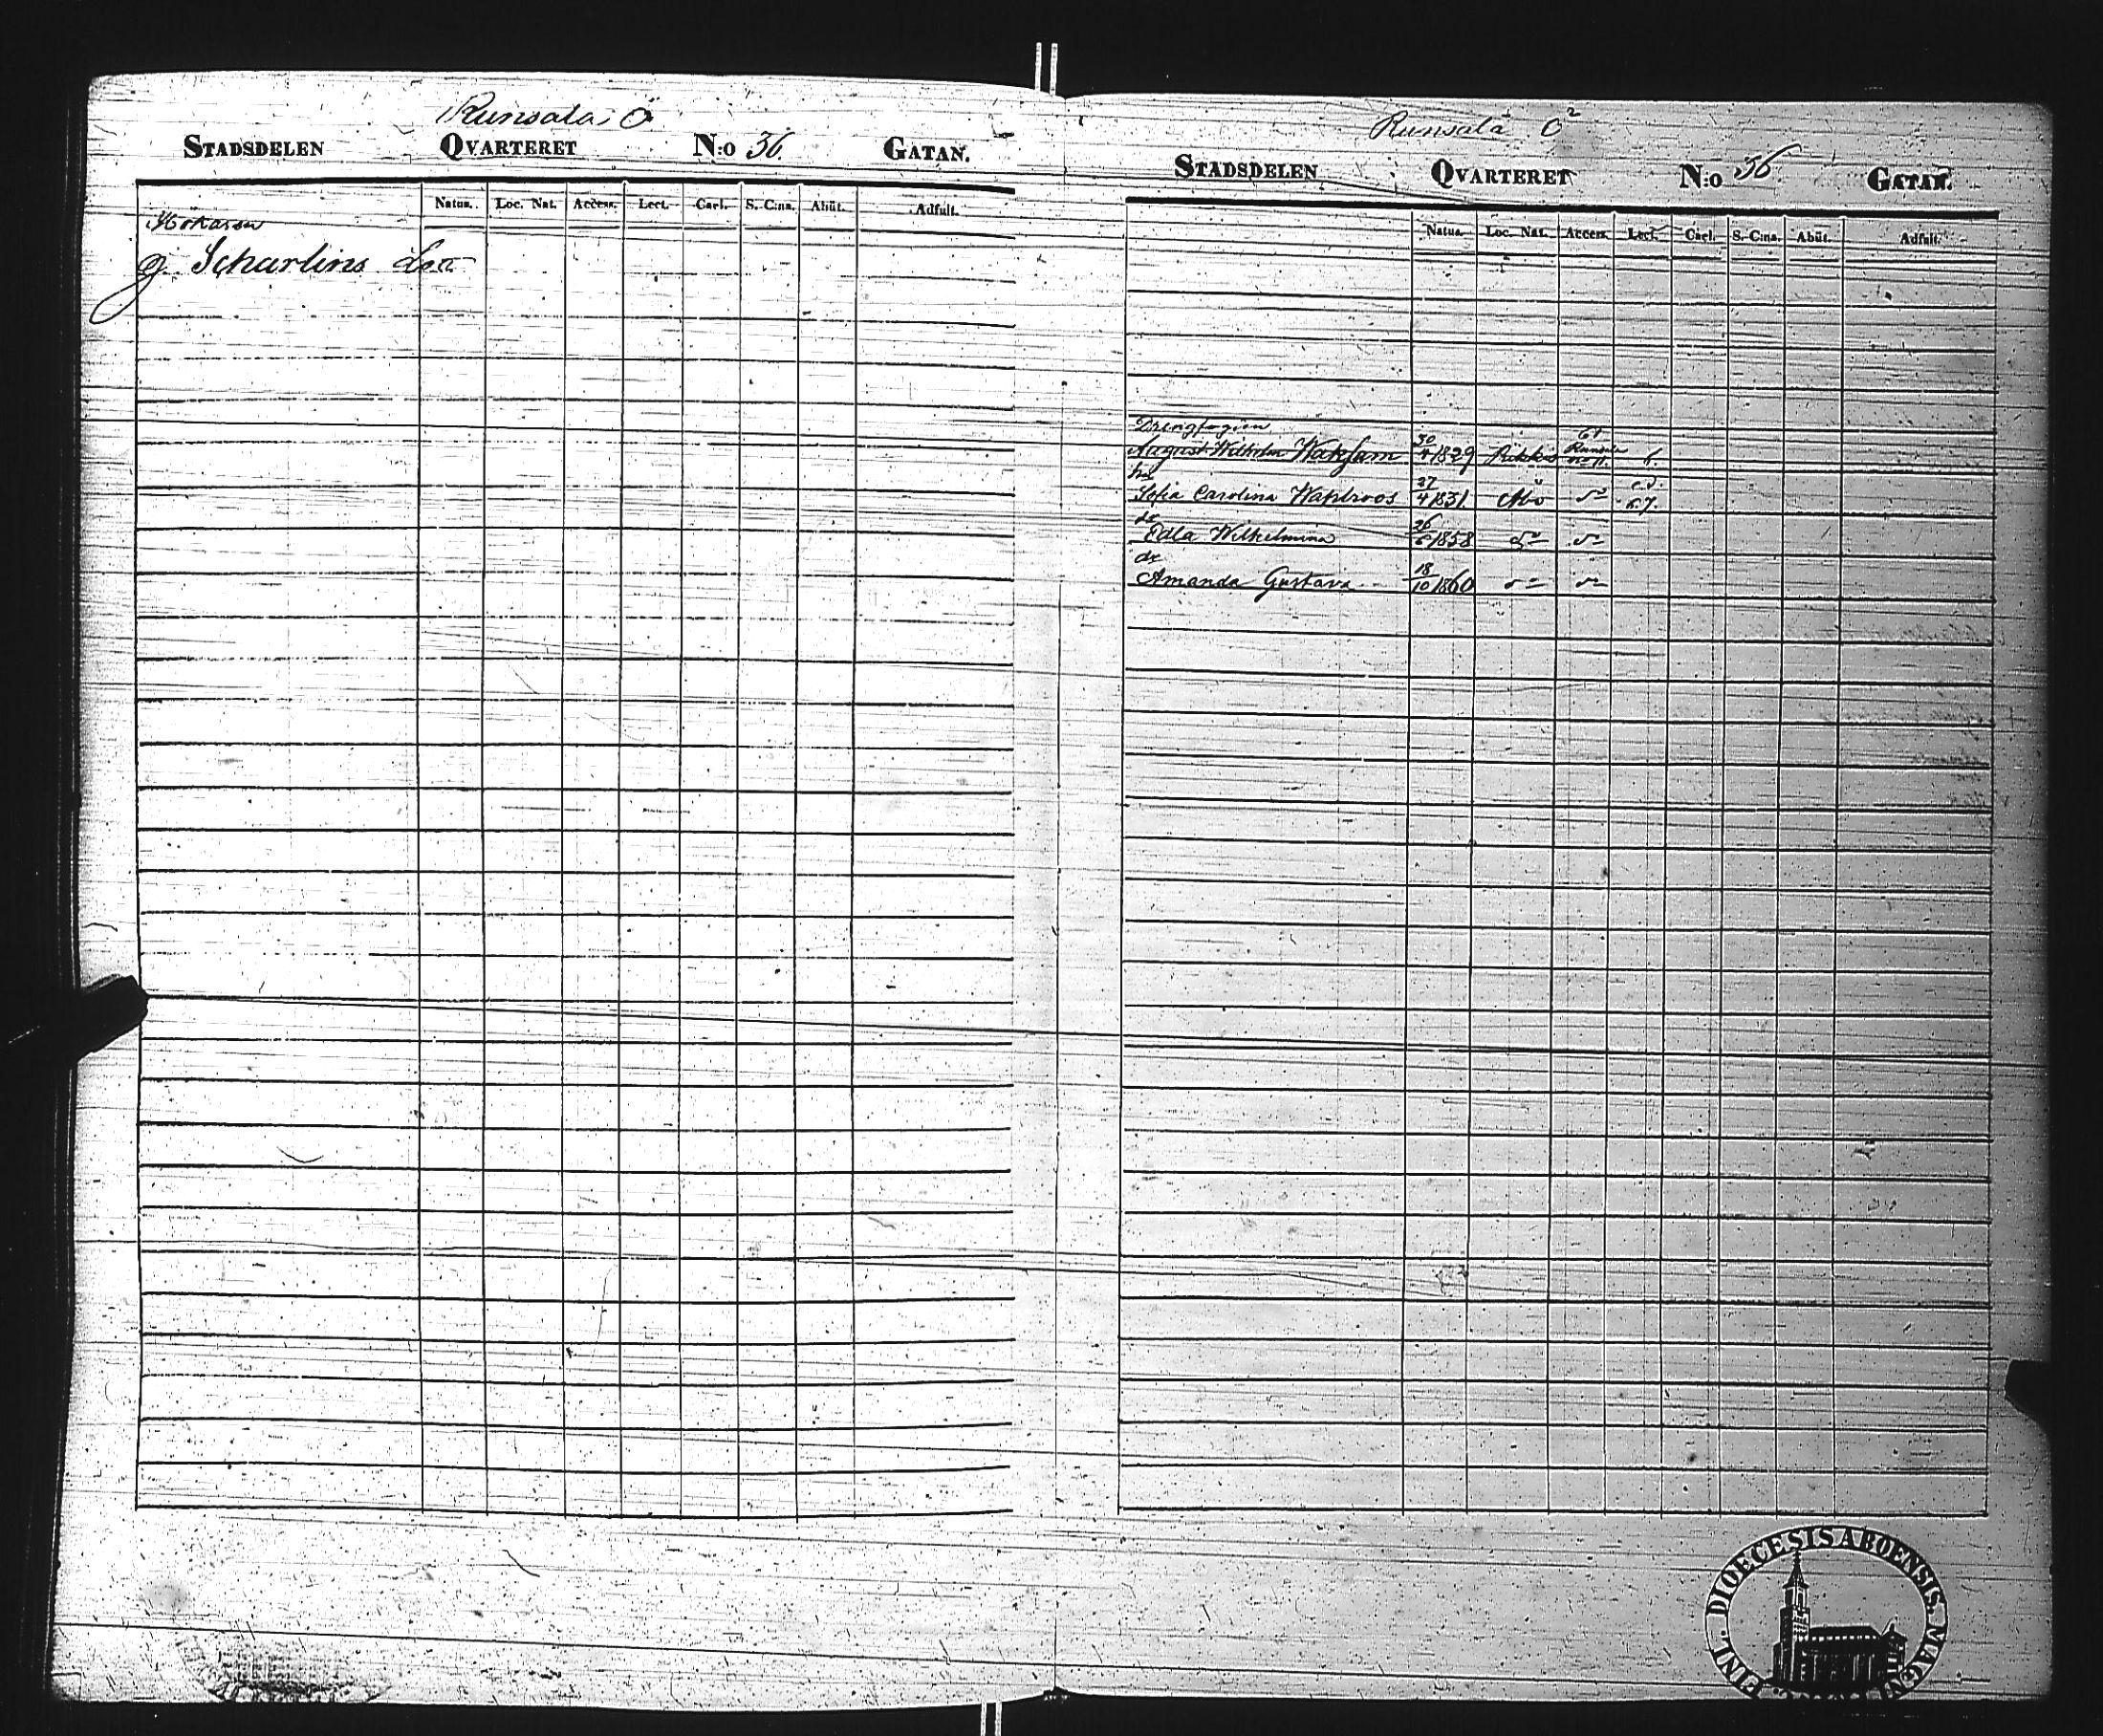 Runsala Ö
STADSDELEN QVARTERET N:o 36. GATAN.
Natus. Loc. Nat. Access. Lect. Carl. S. C:na. Abiit. Adfuit.
Hökaren
G. Scharlins
Runsala Ö
STADSDELEN QVARTERET N:o 36 GATAN.
Natus. Loc. Nat. Access. Lect. Carl. S. C:na. Abiit. Adfuit.
Drengfogden
August Wilhelm 30/4 1829
hu
Sofia Carolina Wahlroos 27/4 1831. Åbo
dr
Edla Wilhelmina 26 1858
dr
Amanda Gustava 18/10 1860
FINL. DIOECESIS ABOENSIS. MAGNI